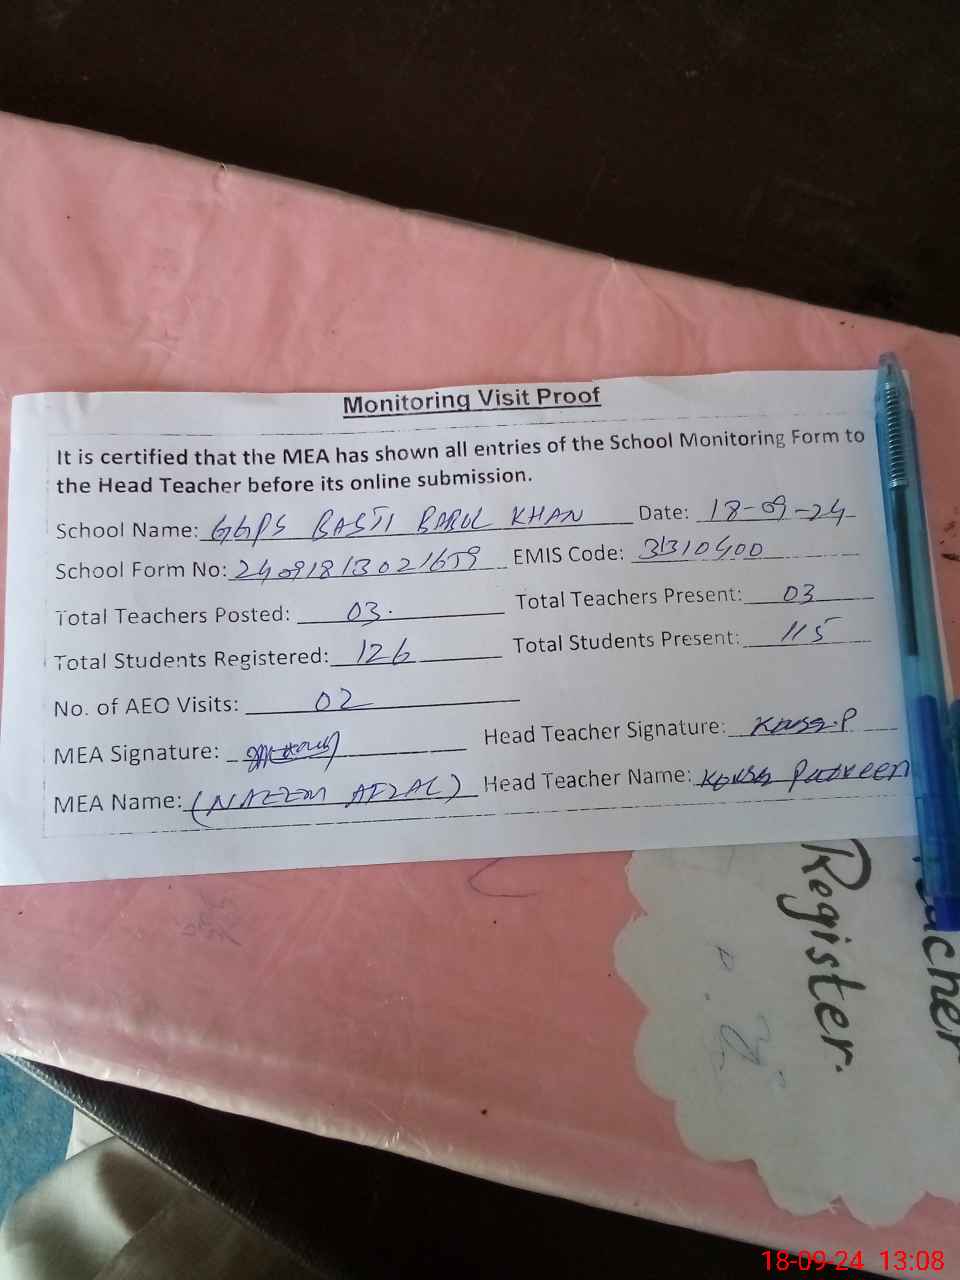 Monitoring Visit Proof
It is certified that the MEA has shown all entries of the School Monitoring Form to
the Head Teacher before its online submission.
School Name: GGPS BASTI BABUL KHAN Date: 18-09-24
School Form No: 24091813021659 EMIS Code: 31310400
Total Teachers Posted: 03. Total Teachers Present: 03
Total Students Registered: 126 Total Students Present: 115
No. of AEO Visits: 02
MEA Signature: Head Teacher Signature:
MEA Name: (NAEEM AFZAL) Head Teacher Name: Parveen
Register.
18-09-24 13:08